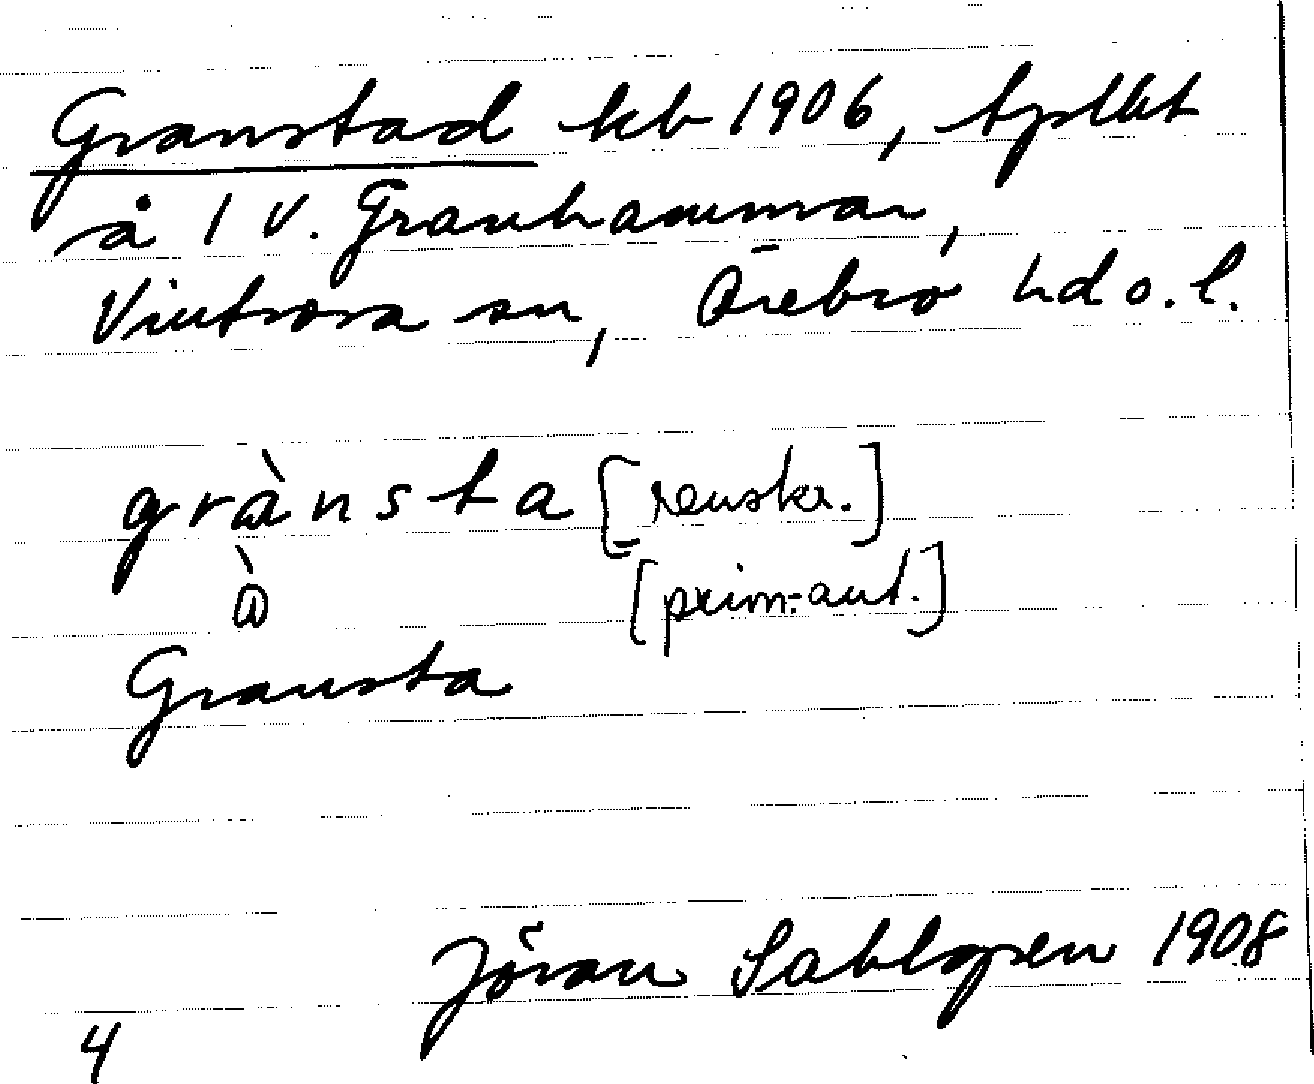 Granstad kb 1906, tplkt
å 1 V. Granhammar,
Vintrosa sn, Örebro hd o. l.
grànsta [renskr.]
à [prim.-aut.]
Gransta
Jöran Sahlgren 1908
4